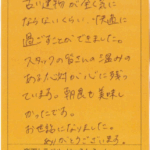 古い建物が全く気に
ならないくらい、快適に
過ごすことができました。
スタッフの皆さんの温みの
ある人対が心に残っ
ています。朝食も美味し
かったです。
お世話になりました。
ありがとうございます。